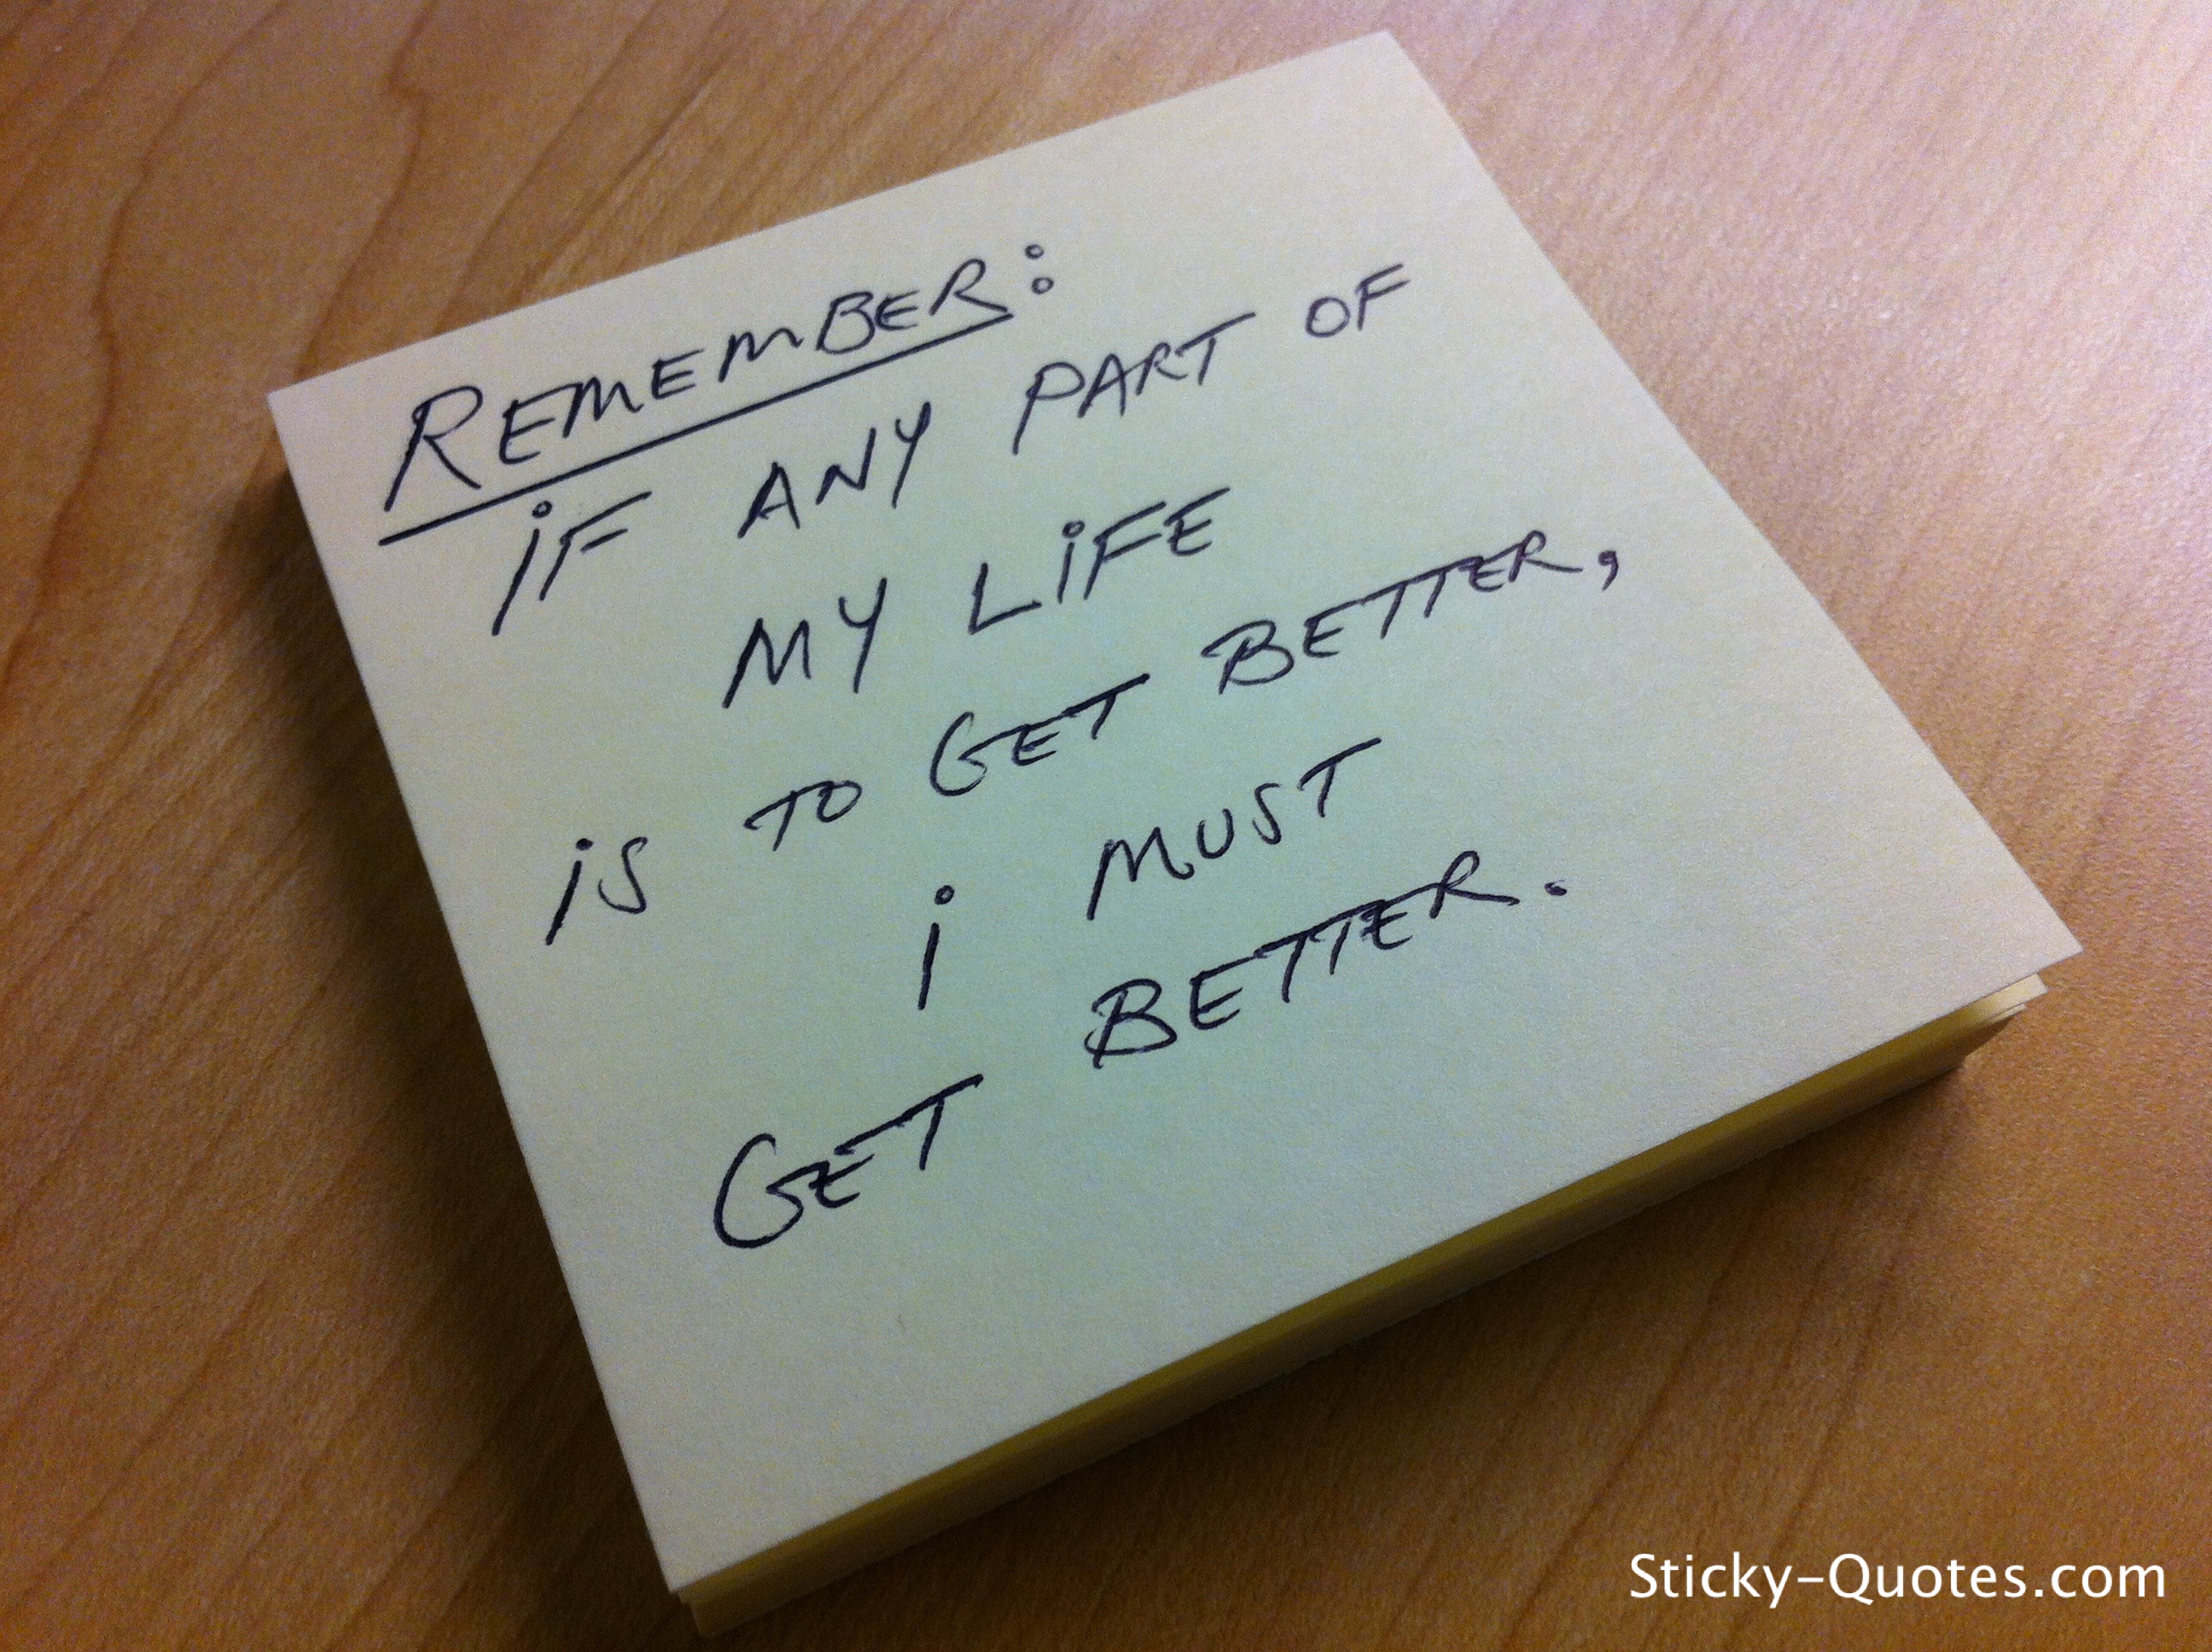 REMEMBER:
iF ANY PART OF
MY LiFE
iS TO GET BETTER,
i MUST
GET BETTER.
Sticky-Quotes.com